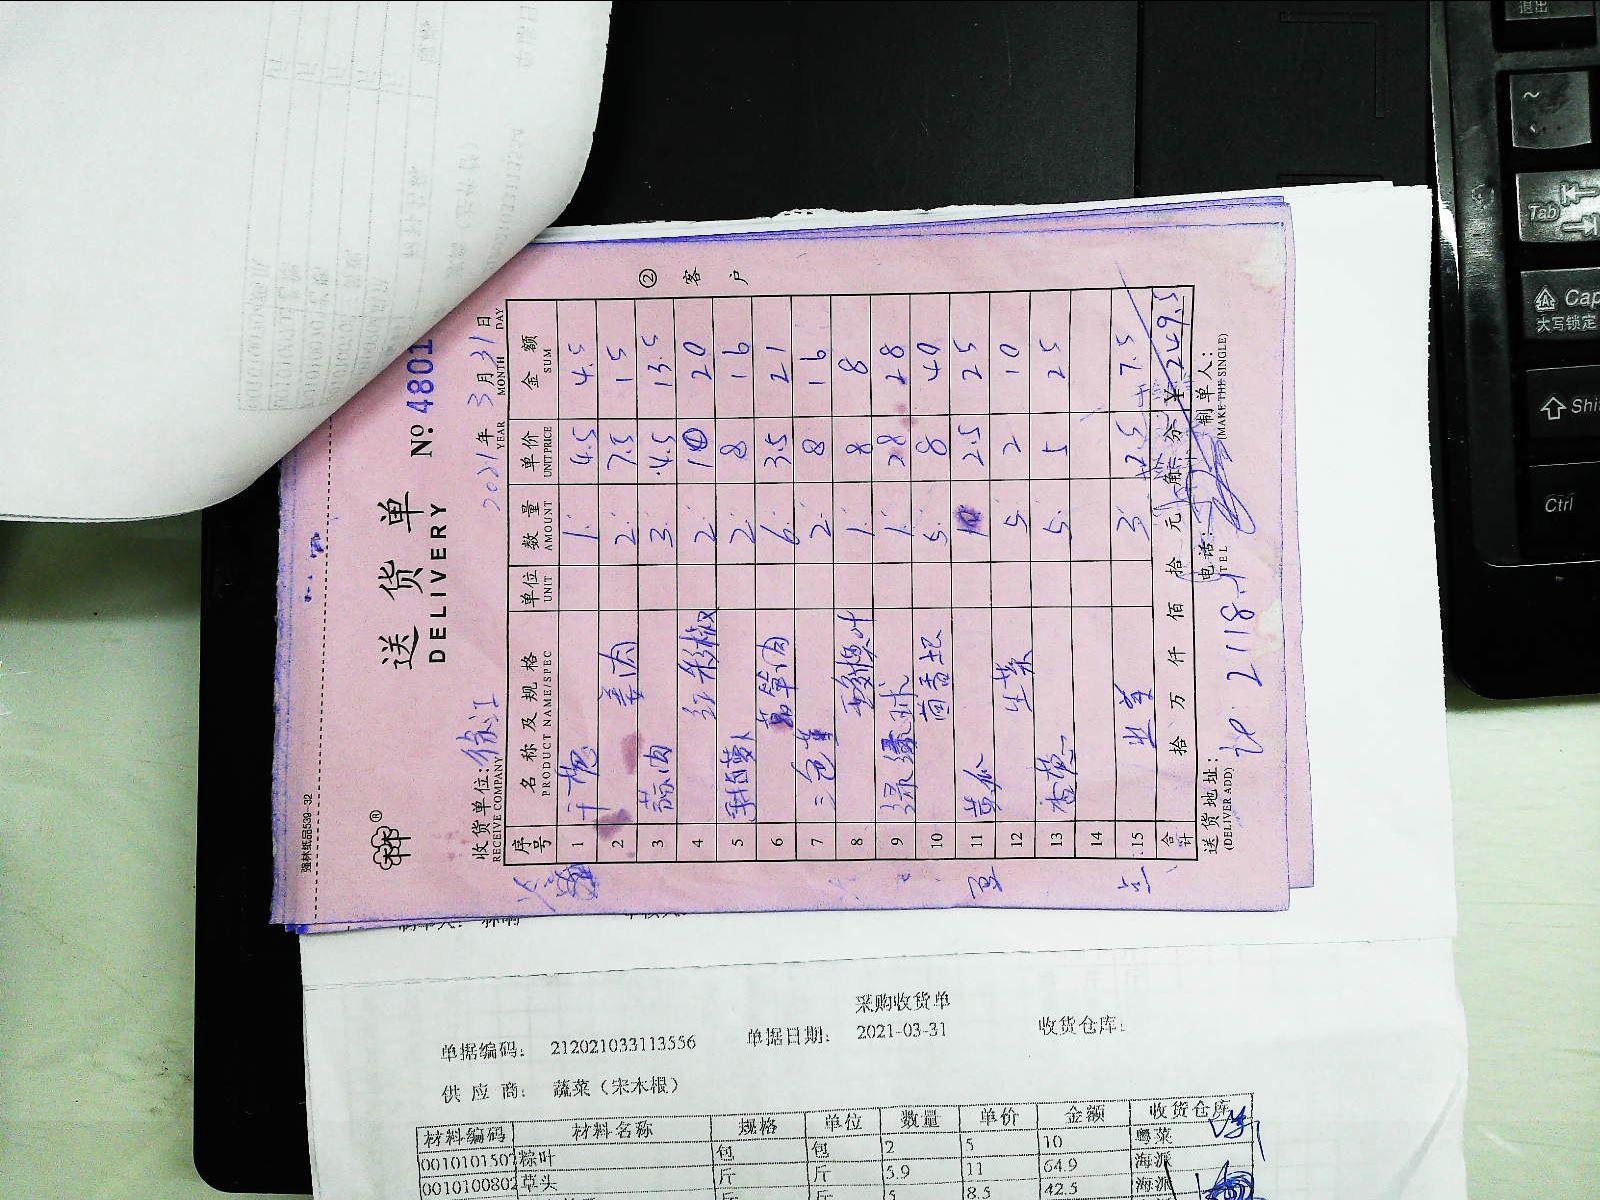 强林纸品539-32
送货单
DELIVERY
№ 4801
收货单位: 徐江
RECEIVE COMPANY
2021年 3月31日
YEAR MONTH DAY
② 客户
序号 名称及规格 单位 数量 单价 金额
PRODUCT NAME/SPEC UNIT AMOUNT UNIT PRICE SUM
1 干葱 1 4.5 4.5
2 姜肉 2 7.5 15
3 蒜肉 3 4.5 13.5
4 红彩椒 2 10 20
5 2 8 16
6 6 3.5 21
7 三色堇 2 8 16
8 1 8 8
9 1 28 28
10 茴香苗 5 8 40
11 黄瓜 10 2.5 25
12 生菜 5 2 10
13 香葱 5 5 25
14
15 3 2.5 7.5
合计 拾万仟佰拾元角分 ¥ 249.5
送货地址: 电话: 制单人:
(DELIVER ADD) TEL (MAKE THE SINGLE)
采购收货单
单据编码: 212021033113556 单据日期: 2021-03-31 收货仓库:
供应商: 蔬菜(宋木根)
材料编码 材料名称 规格 单位 数量 单价 金额 收货仓库
001010150 粽叶 包 包 2 5 10 粤菜
0010100802 草头 斤 斤 5.9 11 64.9 海派
斤 斤 5 8.5 42.5 海派
退出
~
Tab
Cap
大写锁定
Shi
Ctrl